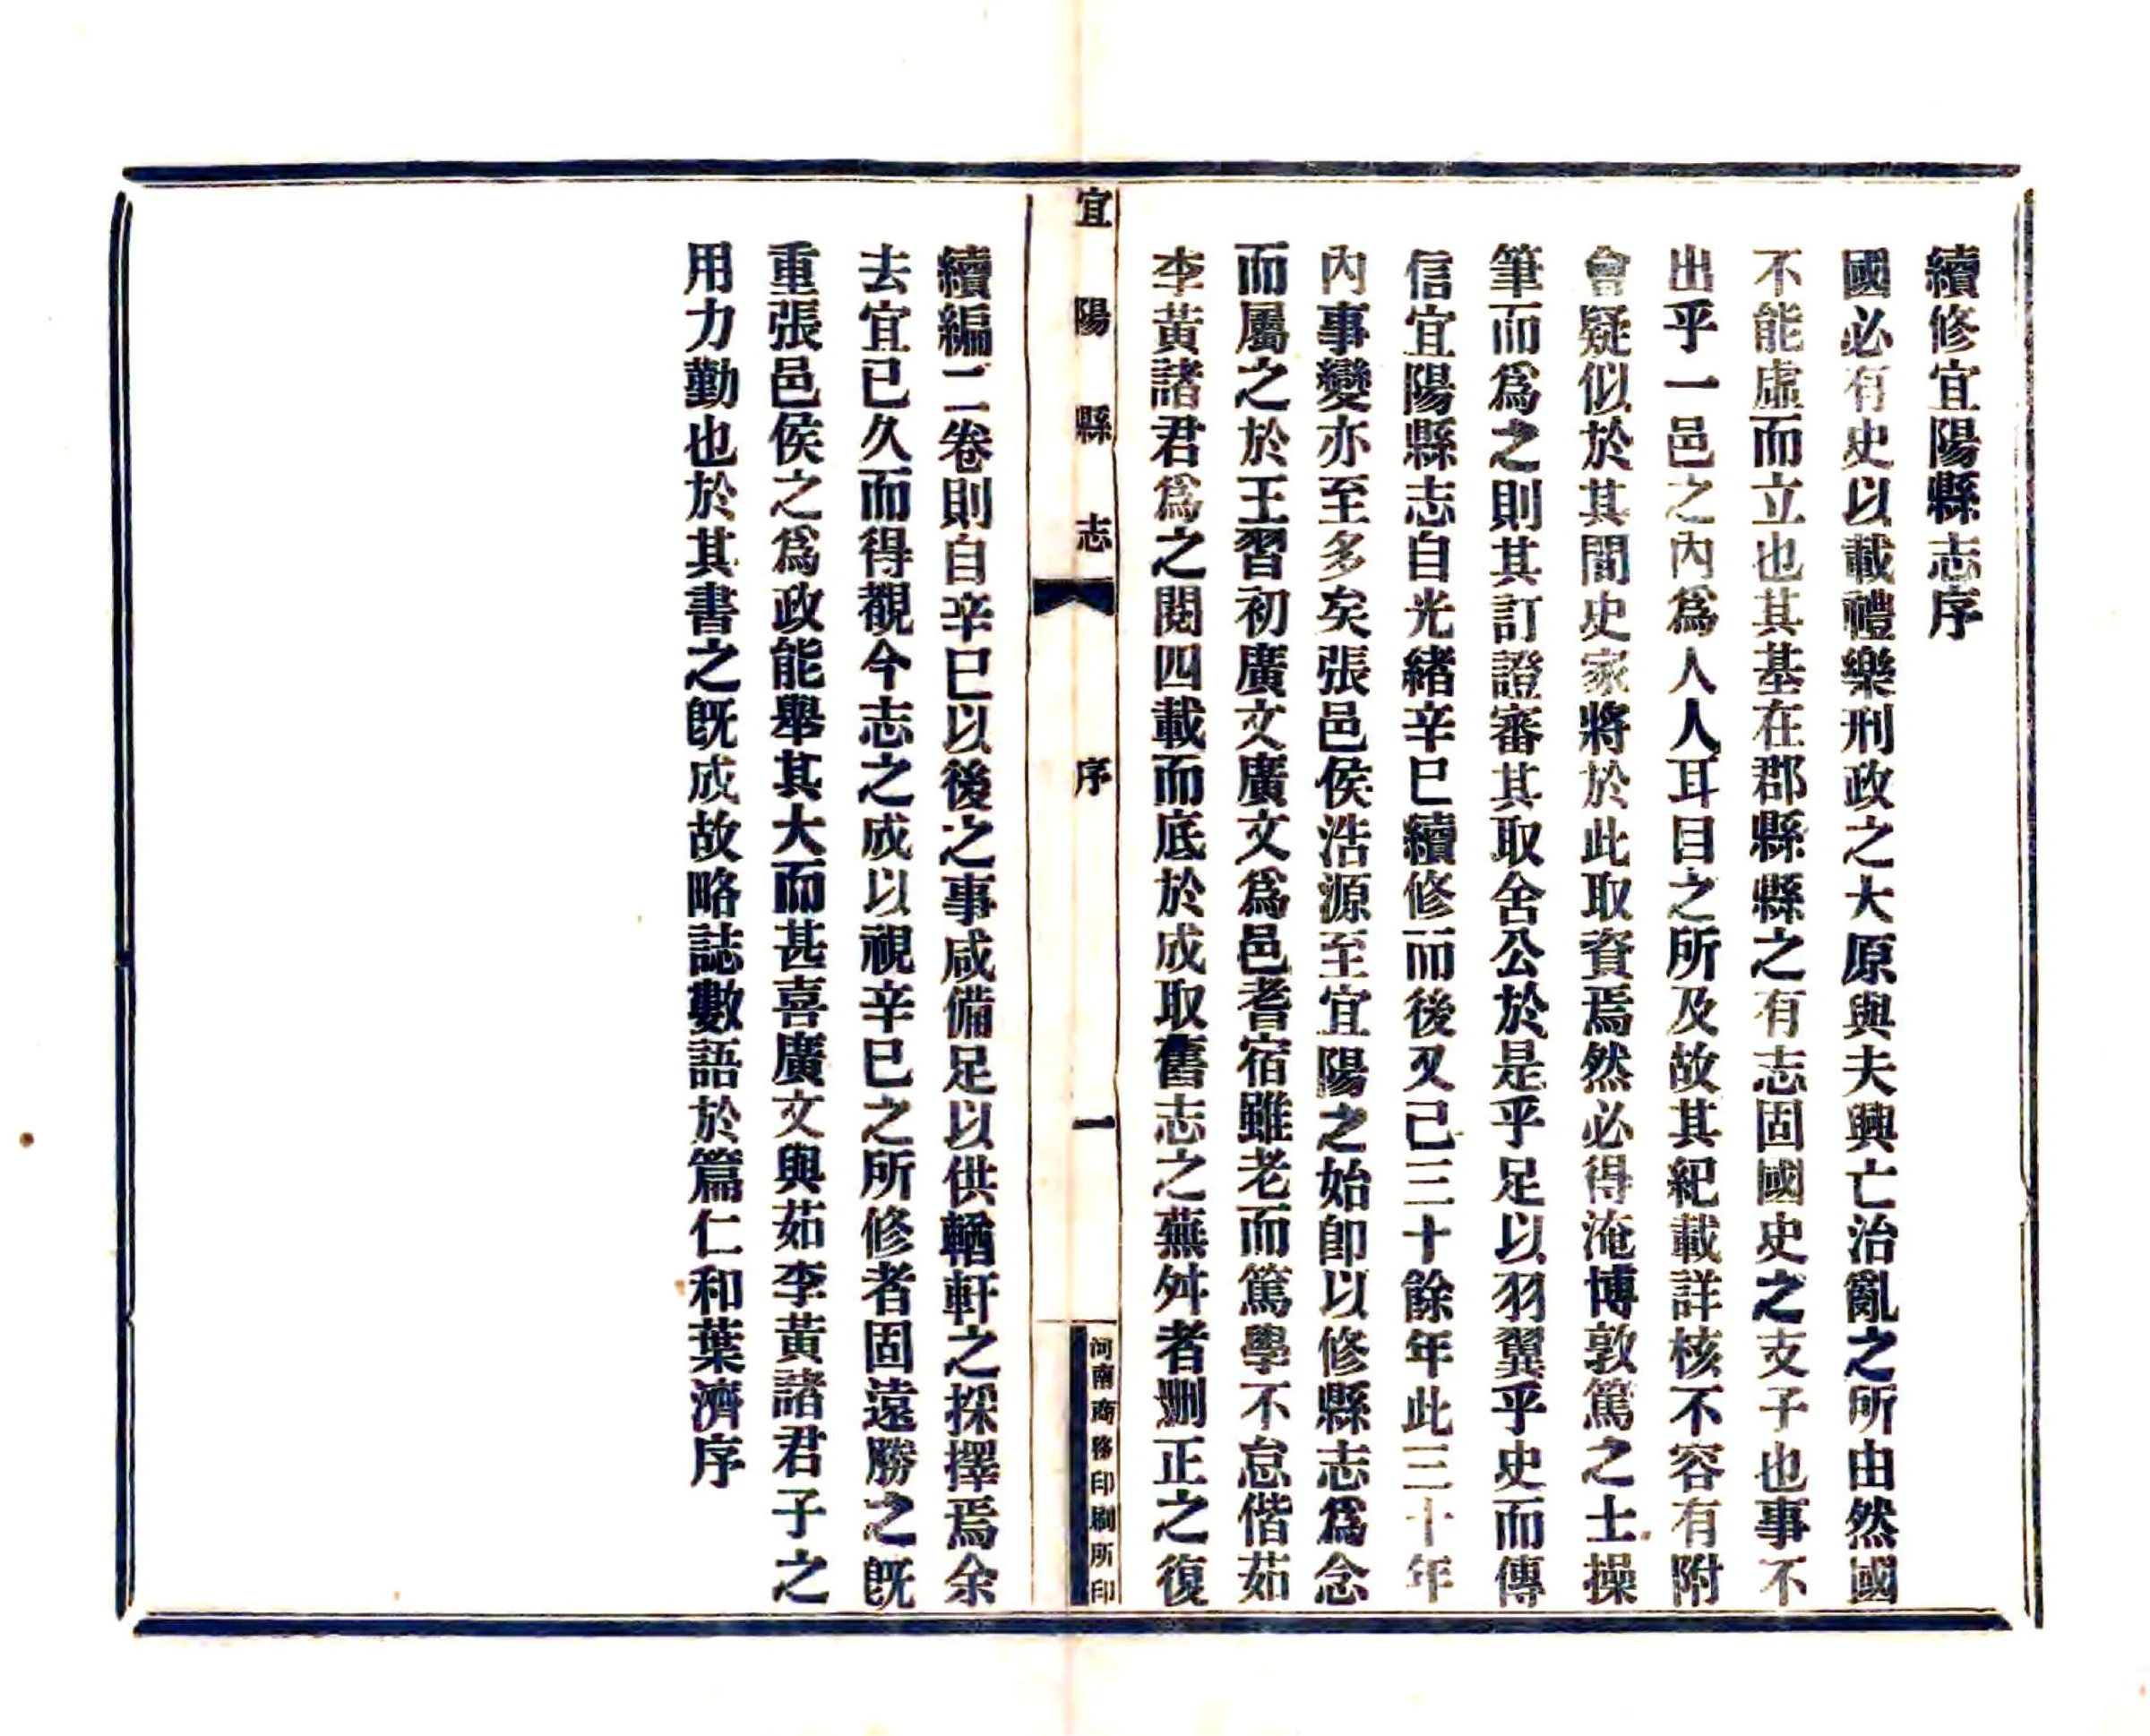 續修宜陽縣志序
國必有史以載禮樂刑政之大原與夫興亡治亂之所由然國
不能虛而立也其基在郡縣縣之有志固國史之支子也事不
出乎一邑之內爲人人耳目之所及故其紀載詳核不容有附
會疑似於其間史家將於此取資焉然必得淹博敦篤之士操
筆而爲之則其訂證審其取舍公於是乎足以羽翼乎史而傳
信宜陽縣志自光緒辛巳續修而後又已三十餘年此三十年
內事變亦至多矣張邑侯浩源至宜陽之始卽以修縣志爲念
而屬之於王習初廣文廣文爲邑耆宿雖老而篤學不怠偕茹
李黃諸君爲之閱四載而底於成取舊志之蕪舛者删正之復
宜陽縣志 序 一 河南商務印刷所印
續編二卷則自辛巳以後之事咸備足以供輶軒之採擇焉余
去宜已久而得覩今志之成以視辛巳之所修者固遠勝之旣
重張邑侯之爲政能舉其大而甚喜廣文與茹李黃諸君子之
用力勤也於其書之旣成故略誌數語於篇仁和葉濟序